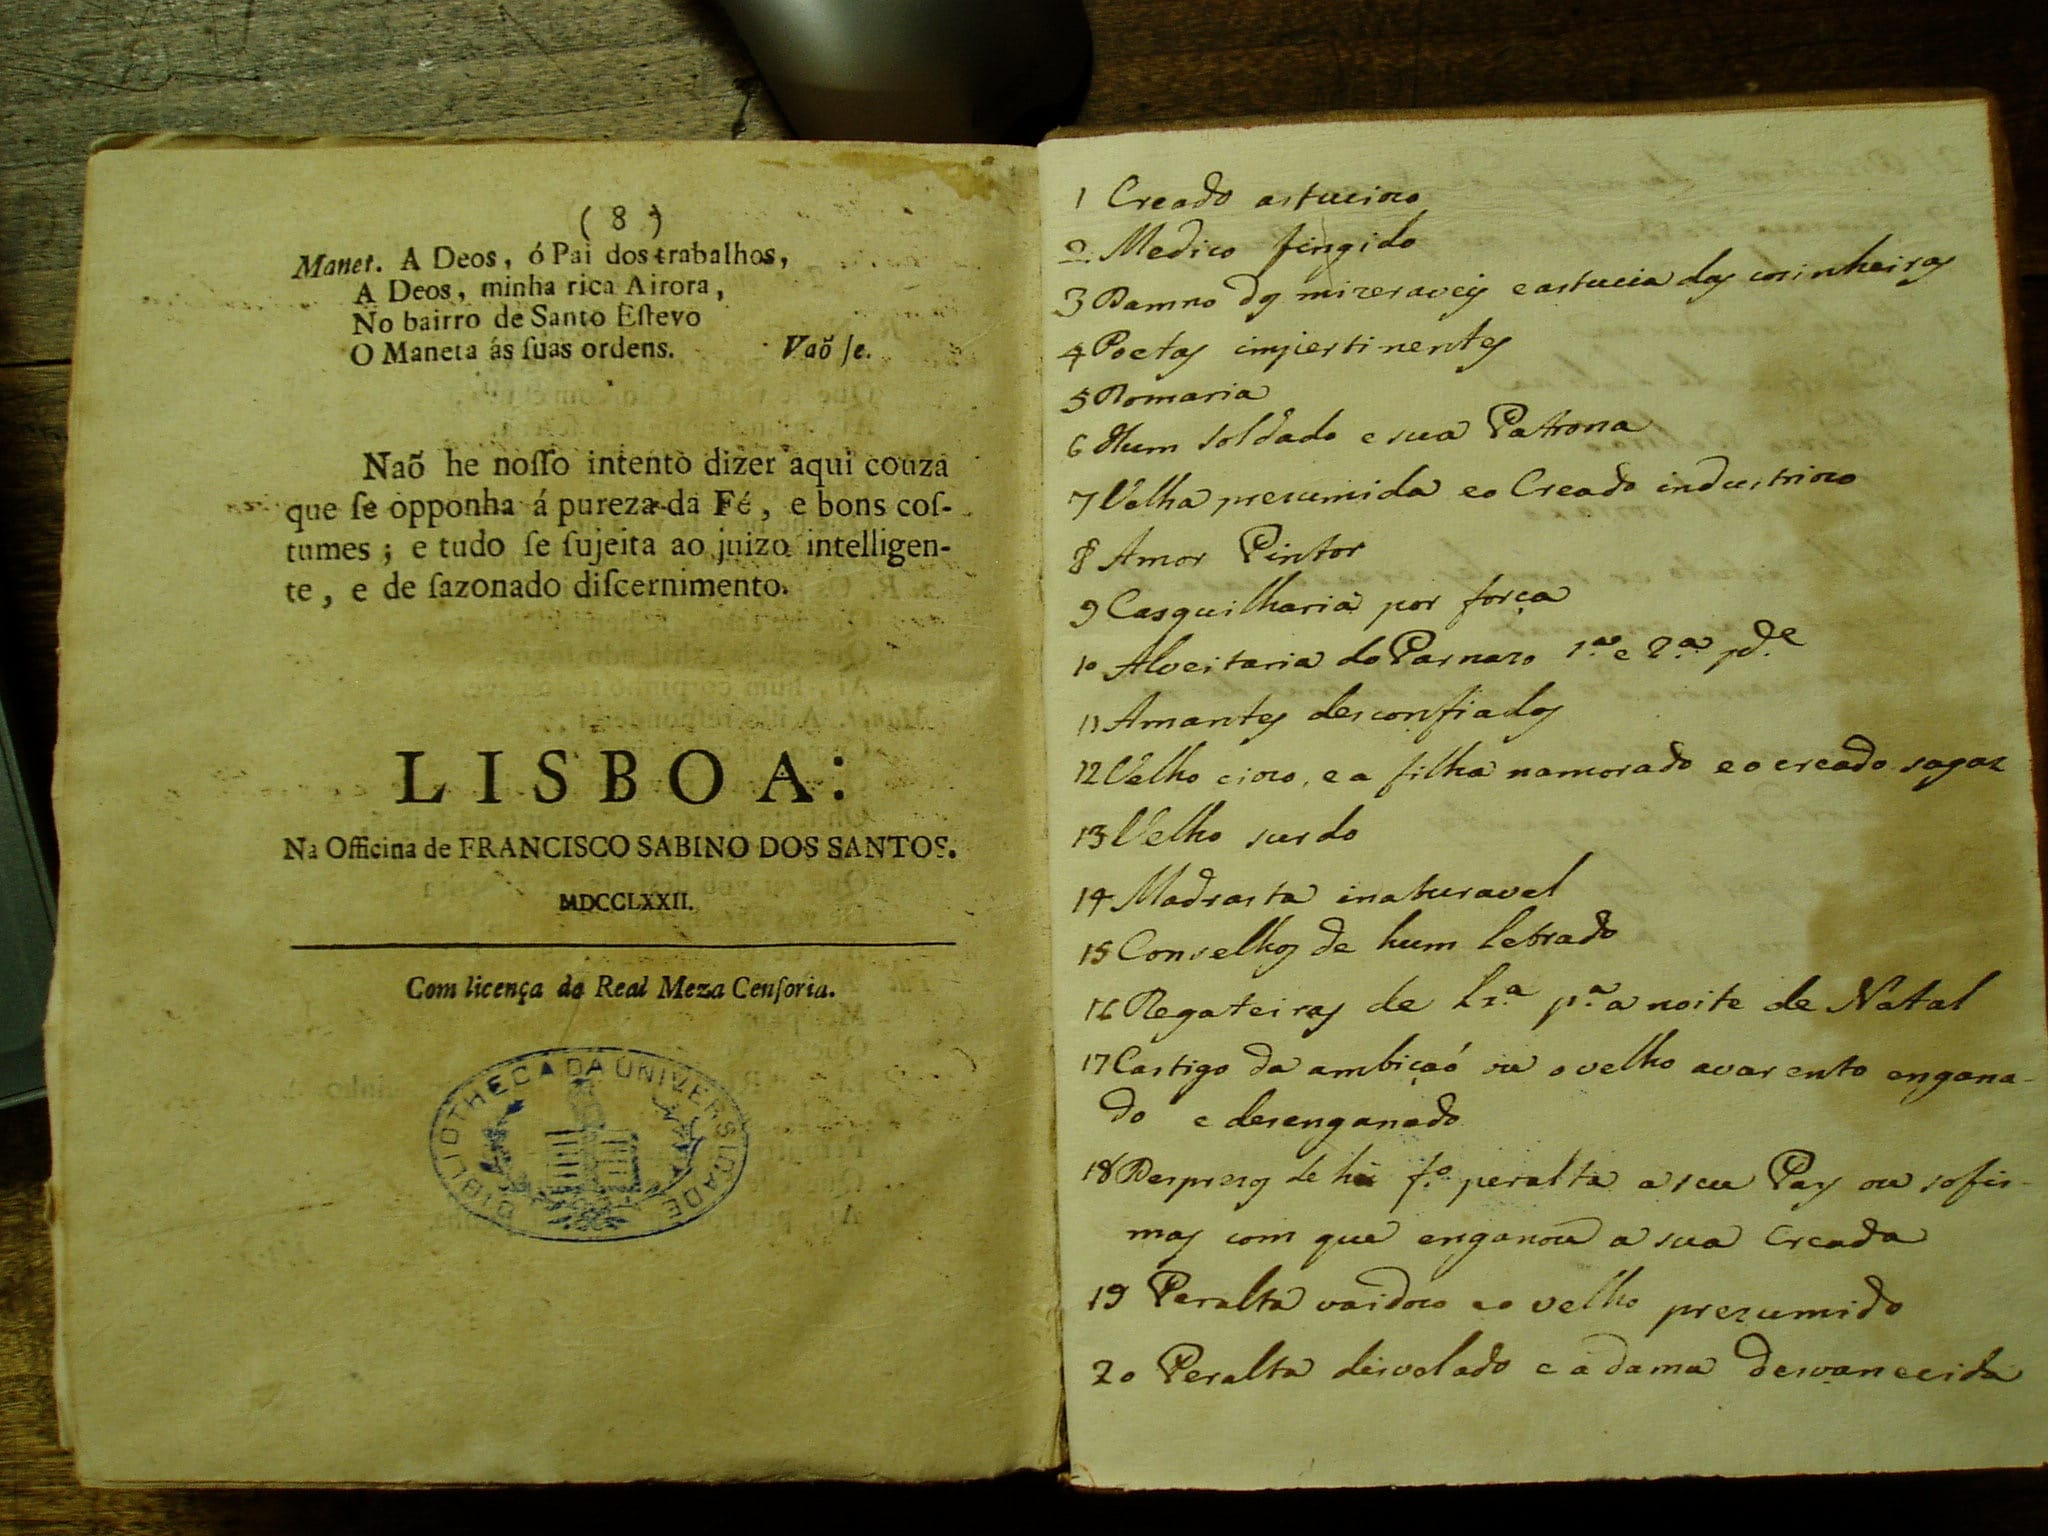 ( 8 )
Manet. A Deos, ó Pai dos trabalhos,
A Deos, minha rica Airora,
No bairro de Santo Eſtevo
O Maneta ás ſuas ordens. Vaõ ſe.
Naõ he noſſo intento dizer aqui couza
que ſe opponha á pureza da Fé, e bons coſ-
tumes; e tudo ſe ſujeita ao juizo intelligen-
te, e de ſazonado diſcernimento.
LISBOA:
Na Officina de FRANCISCO SABINO DOS SANTOS.
MDCCLXXII.
Com licença da Real Meza Cenſoria.
BIBLIOTHECA DA UNIVERSIDADE
1 Creado astucioso
2 Medico fingido
3 Damno dos mizeraveis e astucia das cosinheiras
4 Poetas impertinentes
5 Romaria
6 Hum soldado e sua Patrona
7 Velha prezumida e o Creado industrioso
8 Amor Pintor
9 Casquilharia por força
10 Alveitaria do Parnazo 1.ª e 2.ª p.de
11 Amantes desconfiados
12 Velho cioso, e a filha namorado e o creado sagaz
13 Velho surdo
14 Madrasta inaturavel
15 Conselhos de hum letrado
16 Regateiras de Lx.ª p.ª a noite de Natal
17 Castigo da ambiçaó ou o velho avarento engana-
do e desenganado
18 Desprezos de hũ f.º peralta a seu Pay ou sofis-
mas com que enganou a sua Creada
19 Peralta vaidoso e o velho prezumido
20 Peralta disvelado e a dama desvanecida